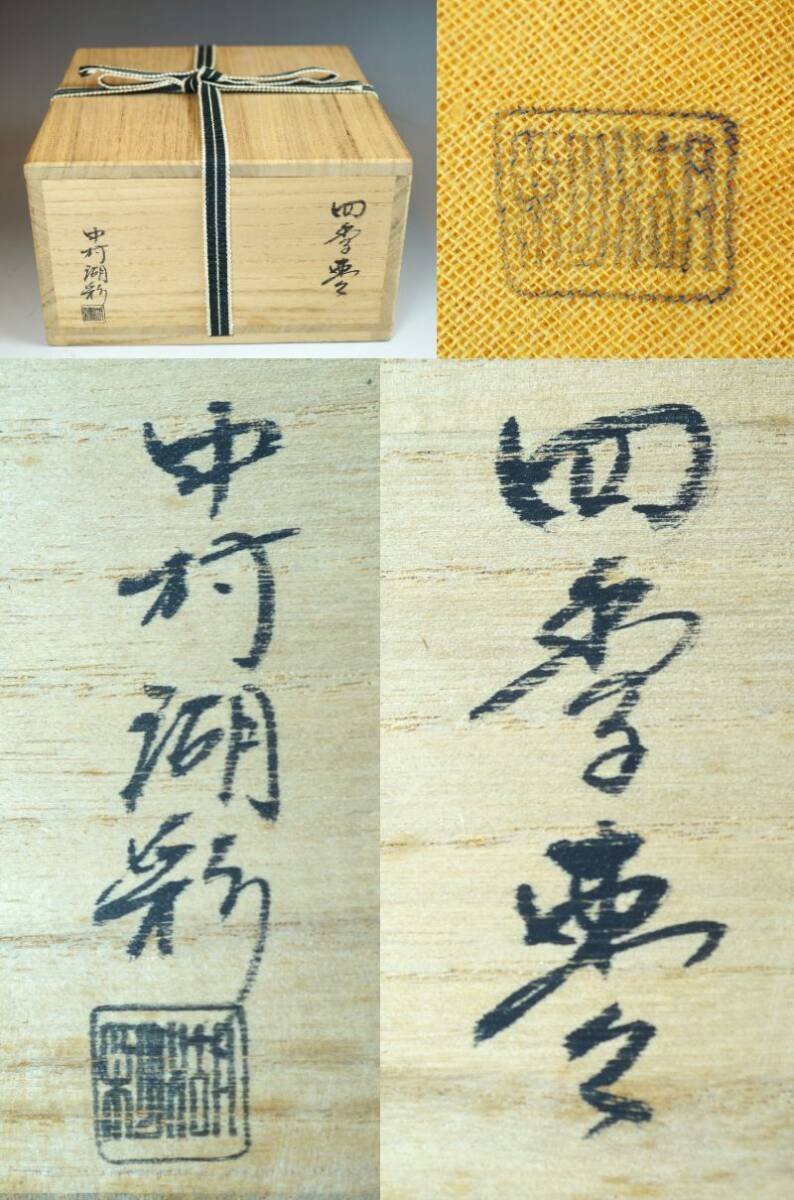 四季棗
中村湖彩
四季棗
中村湖彩